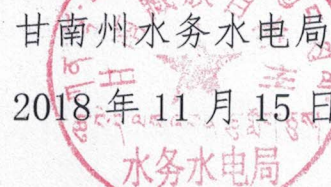 甘南州水务水电局
2018年11月15日
水务水电局